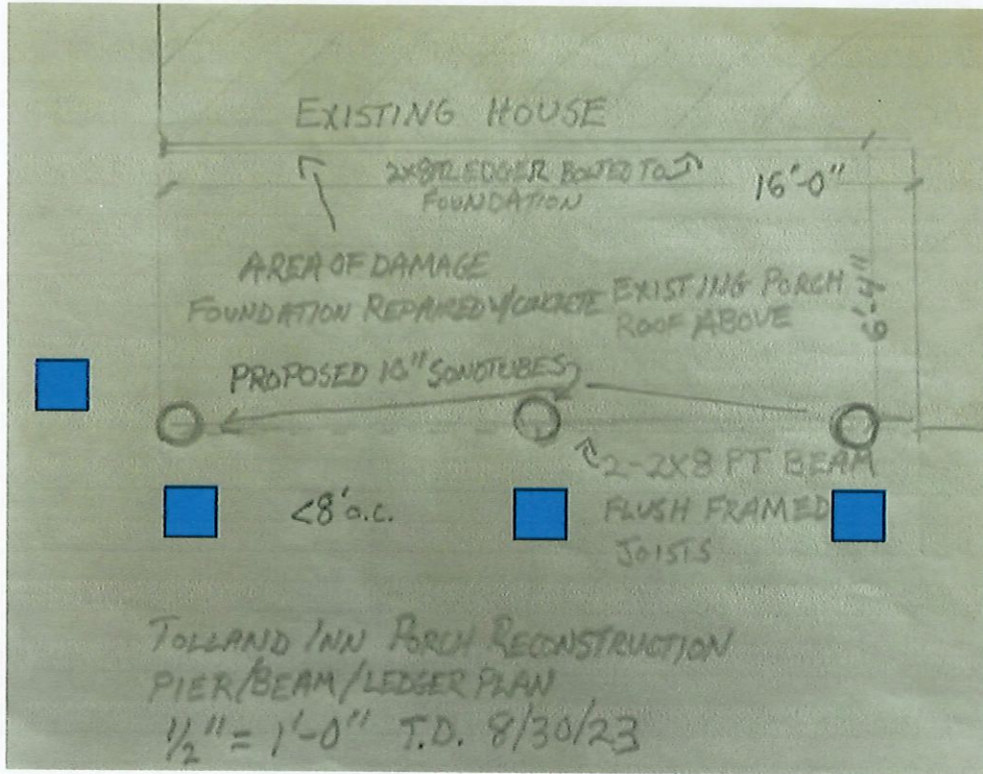 EXISTING HOUSE
2X8 PT LEDGER BOLTED TO
FOUNDATION
16'-0"
AREA OF DAMAGE
FOUNDATION REPAIRED W/CONCRETE
EXISTING PORCH
ROOF ABOVE
6'-4"
PROPOSED 10" SONOTUBES
2-2X8 PT BEAM
FLUSH FRAMED
JOISTS
<8'o.c.
TOLLAND INN PORCH RECONSTRUCTION
PIER/BEAM/LEDGER PLAN
1/2" = 1'-0" T.D. 8/30/23